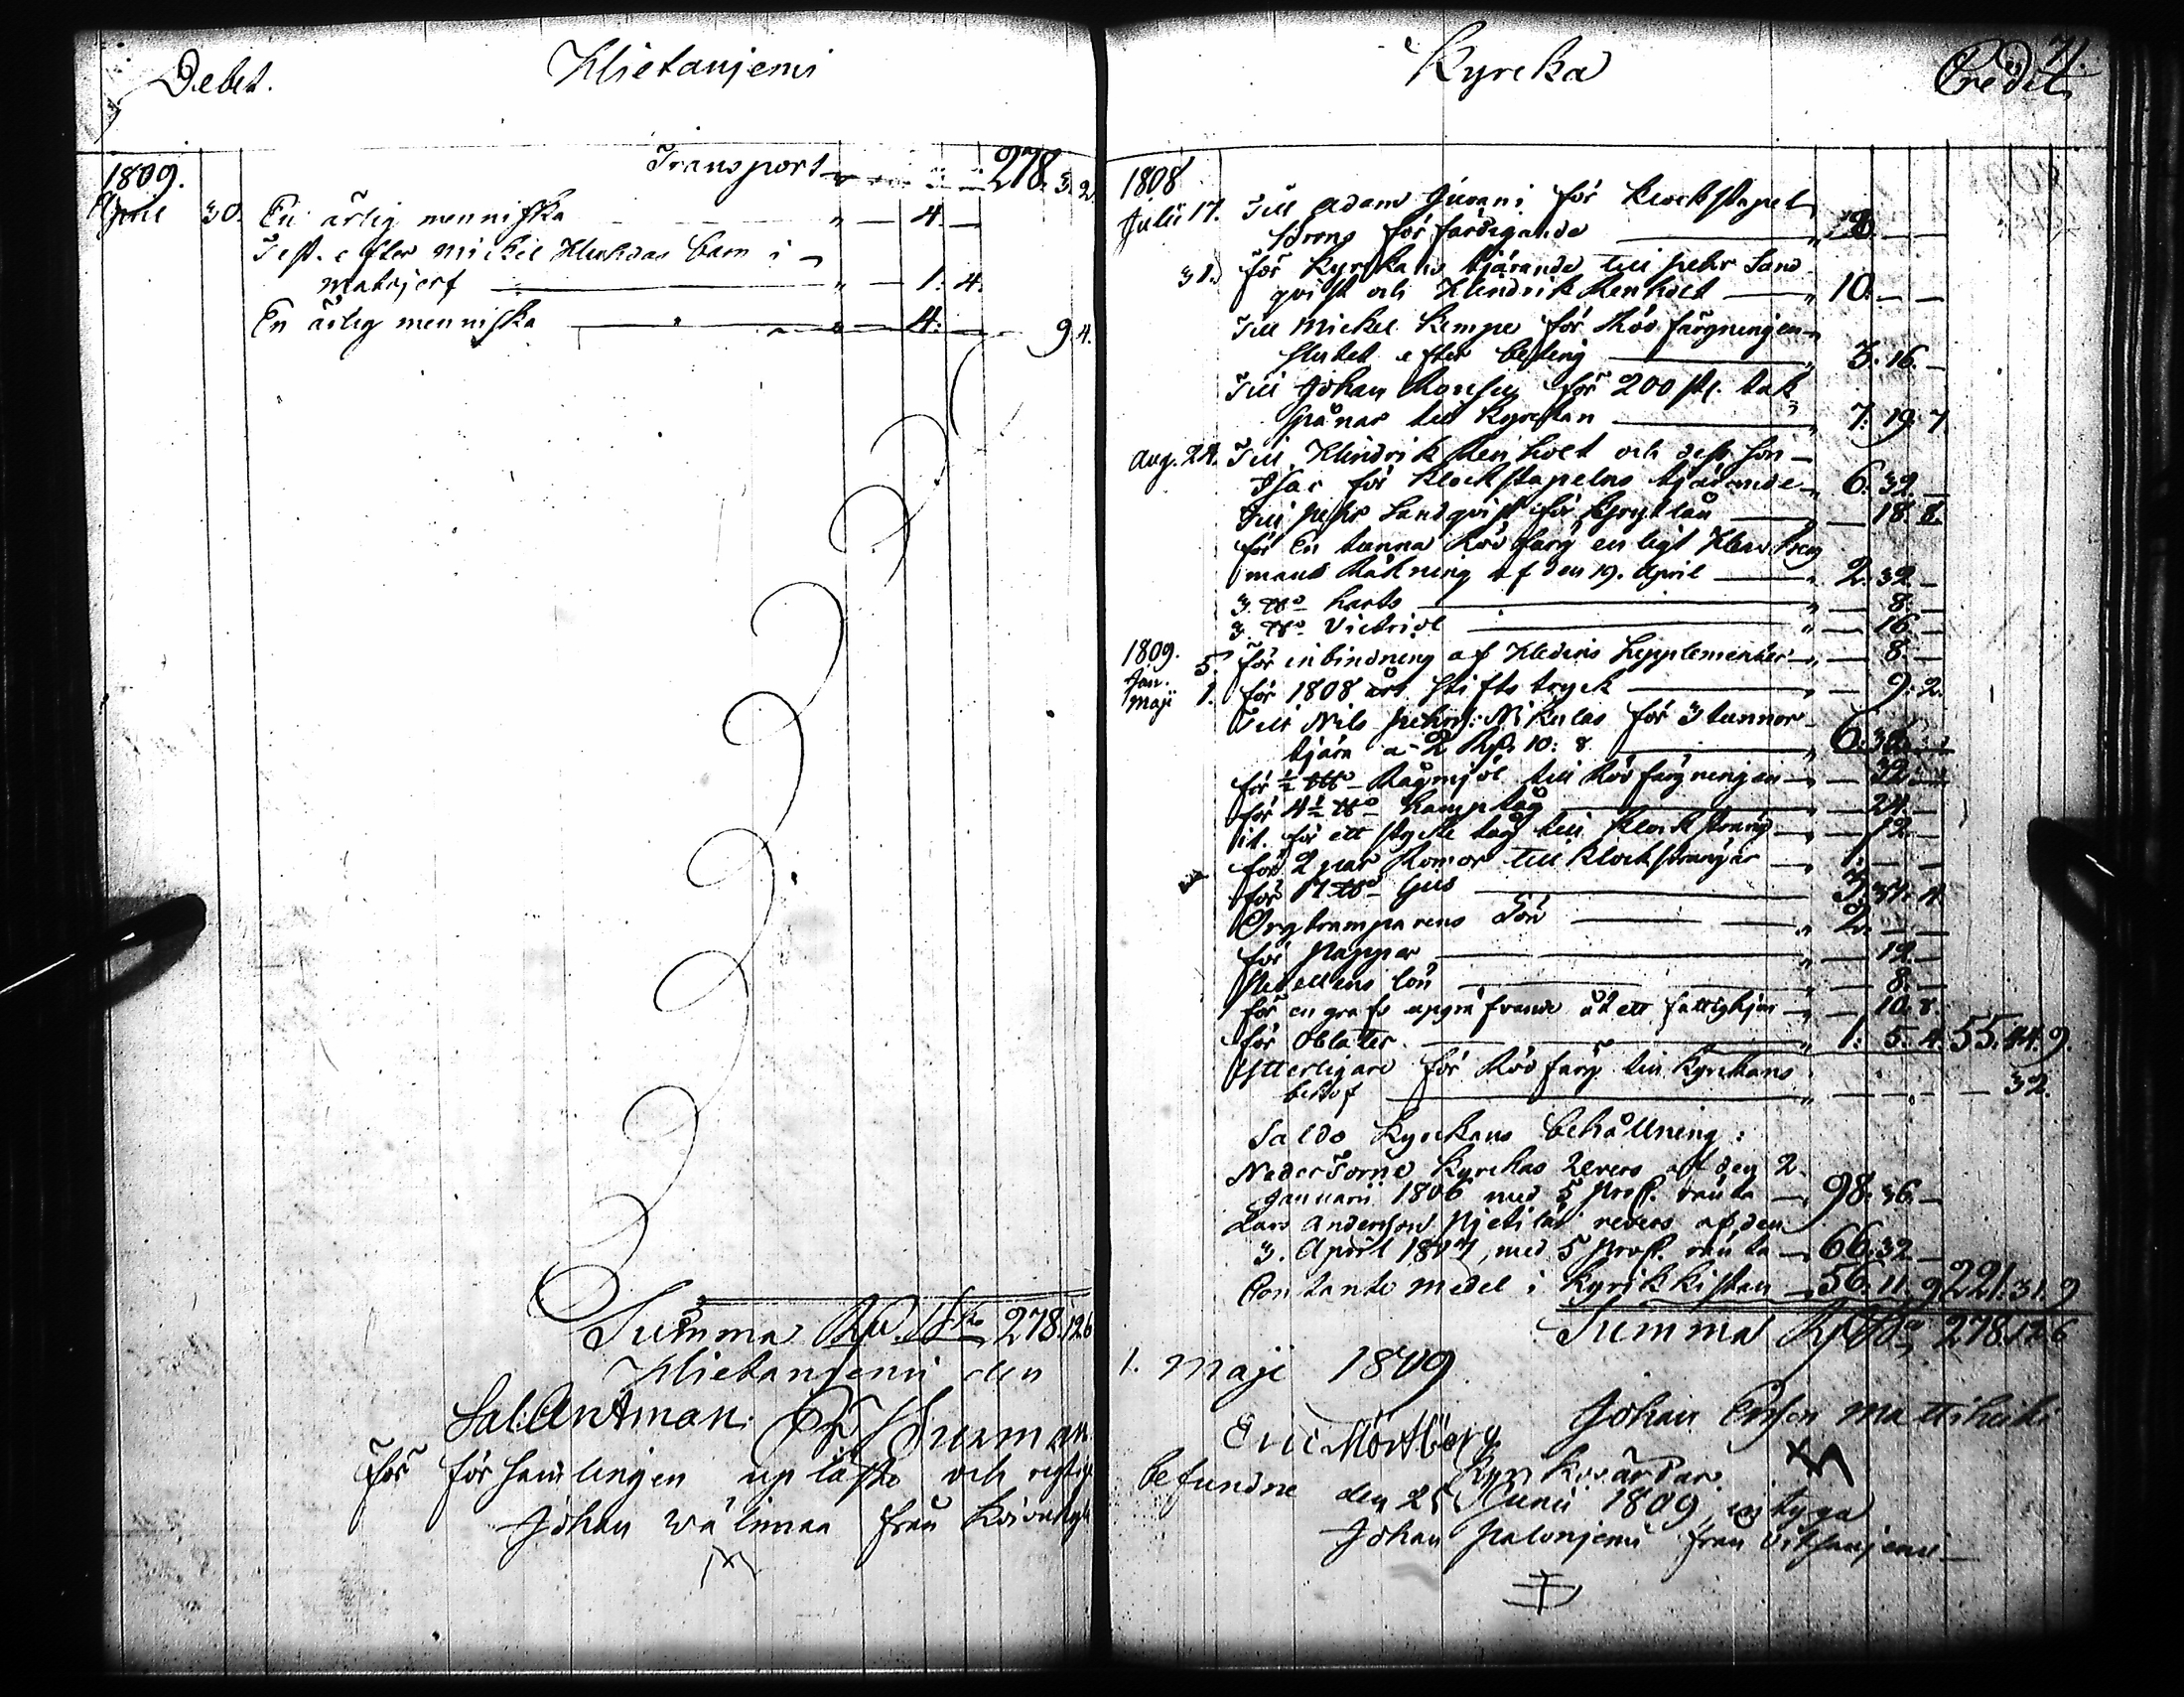 Debet.
Hietaniemi
1809.
Transport 278. 3. 2.
April 30. En ärlig menniska " — 4. —
Test. efter Mickel Huhdas barn i
Matojerf " — 1. 4.
En ärlig menniska " — 4. — 9. 4.
Summa 278. 12. 6
Hietaniemi den
Sal: Antman.
För församlingen upläste och
Johan från
Kyrcka
Credit
71.
1808
Julii 17. Till Adam för Klockstapel
förfärdigande " 8. — —
31. För Kyrckans tjärande till Pehr Sand-
qvist och Hindrik Renholt " 10. — —
Till Mickel Kempe för Rödfärgningen
slutet efter beting " 3. 16. —
Till Johan för 200 st. tak
spånar till Kyrckan " 7. 19. 7
Aug. 24. Till Hindrik Renholt och dess son
Isac för Klockstapelns tjärande " 6. 32. —
Till Pehr Sandqvist för — 18. 8.
för En tunna Rödfärg enligt
mans Räkning af den 19. April " 2. 32. —
3 ℔ harts " — 8. —
3 ℔ Victriol " — 16. —
1809.
Jan. 5. för inbindning af Hedins Supplementer " — 8. —
Maji 1. för 1808 års Stiftstryck " — 9. 2.
Till Nils Nikulas för 3 tunnor
tjära a 2 Rd. 10: 8 " 6. 32. —
för ½ Rågmjöl till Rödfärgningen " — 32. —
för 4½ ℔ hamptåg — 24. —
it. för ett stycke tåg till Klockstrang " — 12. —
för 2 par Remor till Klockstrangar " 1. — —
för ljus 3. 37. 4
Orgtramparens Lön " 2. — —
för Papper " — 12. —
lön " — 8. —
för en grafs upgräfvande åt ett fattighjon " — 10. 8.
för Oblater " 1. 5. 4. 55. 44. 9.
Ytterligare för Rödfärg till Kyrckans
behof " — — — — 32.
Saldo Kyrckans behållning:
Neder Torne Kyrckas revers af den 2.
Januarii 1806 med 5 proC. ränta " 98. 36. —
Lars Andersson revers af den
3. April 1807, med 5 proC. ränta " 66. 32. —
Contante medel i Kyrckkistan 56. 11. 9 221. 31. 9
Summa 278. 12. 6
1. Maji 1809
Eric Mörtberg
Johan Ersson Mattiheiki
Kyrkovärdar.
befundne den 25 Junii 1809, wi tyga
Johan Palonjemi från Vitsanjemi